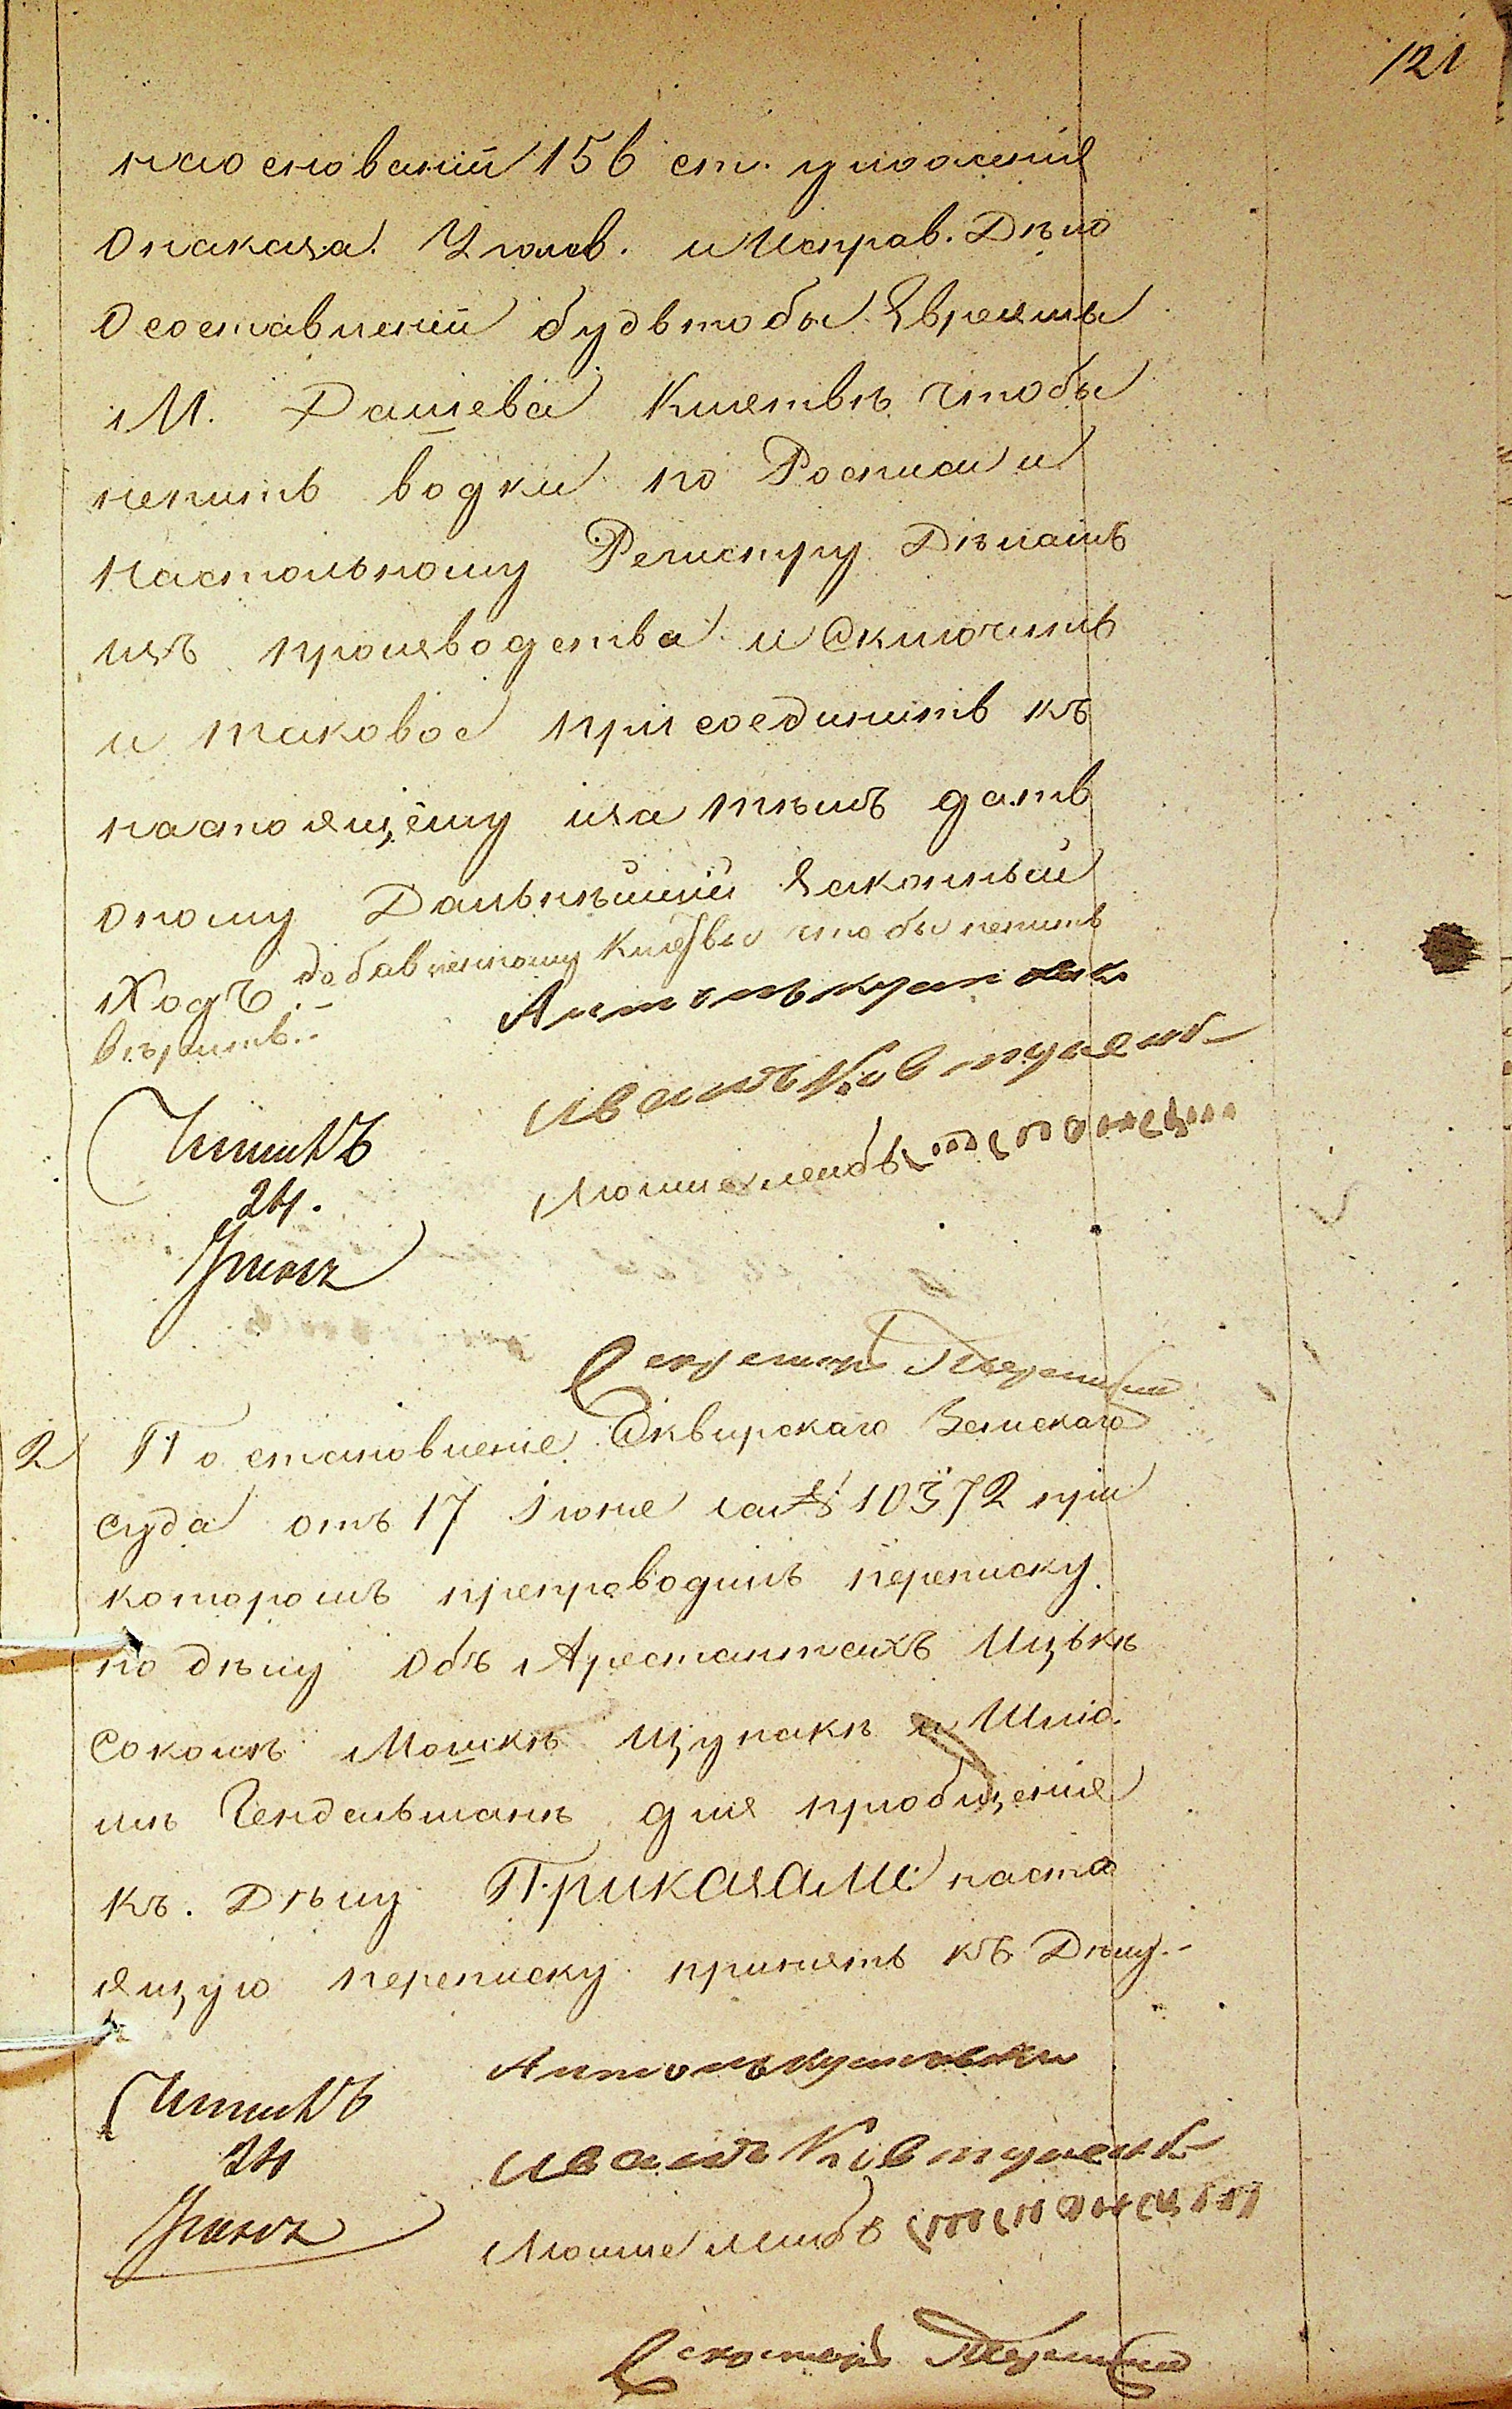 121
на основаніи 156 ст. уложенія
о наказа. Уголов. и Исправ. Дѣло
о составленіи будьтобы Евреями
М. Дашева Клятвъ чтобы
непить водки по Росписи и
Настольному Регистру Дѣламъ
изъ производства изключить
и таковое присоединить къ
настоящему иза тѣмъ дать
оному Дальнѣйшій Законный
Ходъ. добавленному Клятвы чтобы непить
вѣрить.
Антонъ
Иванъ Ковтуненко
Мошко Лейбъ
Читалъ
24.
Іюня
Секретарь
2 Постановленіе Сквирскаго Земскаго
Суда отъ 17 Іюня за № 10372 при
которомъ препроводилъ переписку
по дѣлу объ Арестантахъ Ицькѣ
Соколѣ Мошкѣ Щупакѣ и Шліо.
мѣ Гендельманѣ для пріобщенія
къ. Дѣлу Приказали: насто
ящую переписку принять къ Дѣлу.
Читалъ
24
Антонъ
Иванъ Ковтуненко
Мошко Лейбъ
Секретарь